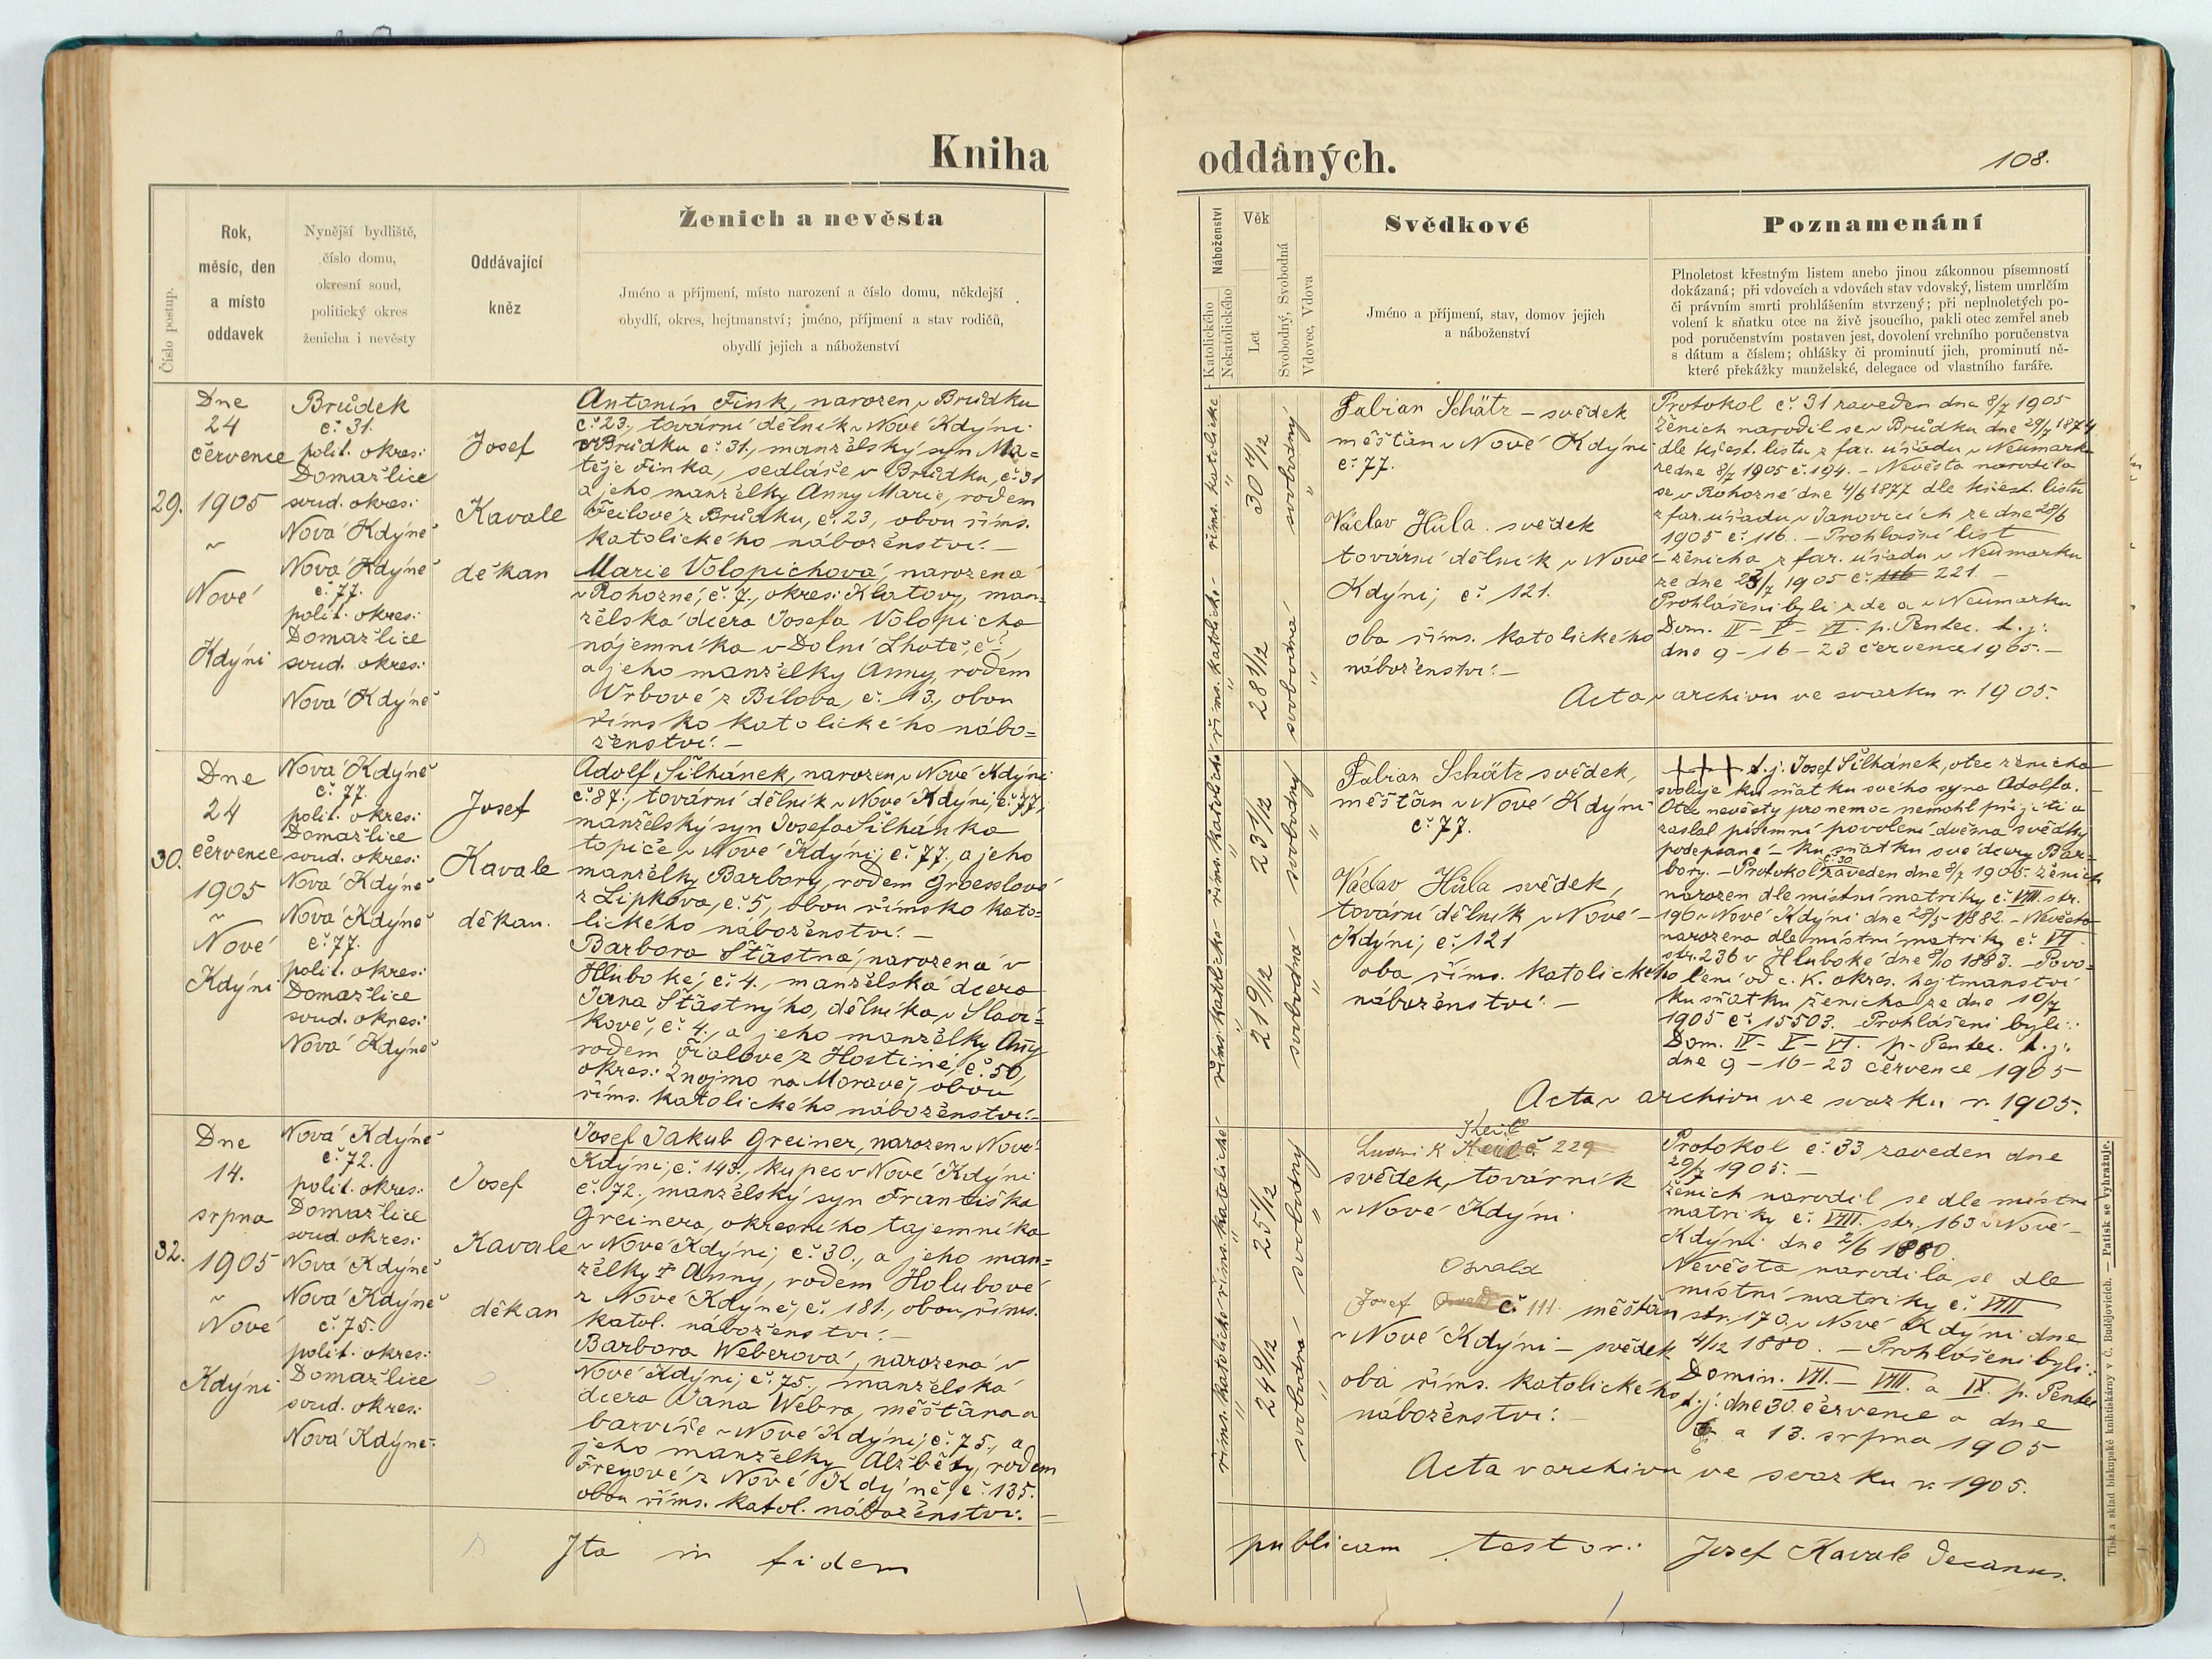 Kniha
oddaných.
108.
Číslo postup.
Rok,
měsíc, den
a místo
oddavek
Nynější bydliště,
číslo domu,
okresní soud,
politický okres
ženicha i nevěsty
Oddávající
kněz
Ženich a nevěsta
Jméno a příjmení, místo narození a číslo domu, někdejší
obydlí, okres, hejtmanství; jméno, příjmení a stav rodičů,
obydlí jejich a náboženství
Náboženství
Katolického
Nekatolického
Věk
Let
Svobodný, Svobodná
Vdovec, Vdova
Svědkové
Jméno a příjmení, stav, domov jejich
a náboženství
Poznamenání
Plnoletost křestným listem anebo jinou zákonnou písemností
dokázaná; při vdovcích a vdovách stav vdovský, listem umrlčím
či právním smrti prohlášením stvrzený; při neplnoletých po-
volení k sňatku otce na živě jsoucího, pakli otec zemřel aneb
pod poručenstvím postaven jest, dovolení vrchního poručenstva
s dátum a číslem; ohlášky či prominutí jich, prominutí ně-
které překážky manželské, delegace od vlastního faráře.
29.
Dne
24
července
1905
~
Nové
Kdýni
Brůdek
č. 31.
polit. okres:
Domažlice
soud. okres:
Nová Kdýně
Nová Kdýně
č. 77.
polit. okres:
Domažlice
soud. okres:
Nová Kdýně
Josef
Kavale
děkan
Antonín Fink, narozen v Brůdku
č. 23., tovární dělník v Nové Kdýni
v Brůdku č. 31., manželský syn Ma=
těje Finka, sedláře v Brůdku, č. 31
a jeho manželky Anny Marie, rodem
Feilové z Brůdku, č. 23, obou říms.
katolického náboženství. —
Marie Volopichová, narozená
v Rohozné, č. 7., okres: Klatovy, man=
želská dcera Josefa Volopicha
nájemníka v Dolní Lhotě, č. 1,
a jeho manželky Anny, rodem
Vrbové z Bílova, č. 13., obou
římsko katolického nábo=
ženství. —
řims. katolické
"
30 11/12
svobodný
"
řims. katolické
"
28 1/12
svobodná
"
Fabian Schätz — svědek
měštan v Nové Kdýni
č. 77.
Václav Hůla. svědek
tovární dělník v Nové
Kdýni, č. 121.
oba říms. katolického
náboženství. —
Protokol č. 31 zaveden dne 8/7 1905
Ženich narodil se v Brůdku dne 29/7 1874
dle křest. listu z far. úřadu v Neumarku
ze dne 8/7 1905 č. 194. — Nevěsta narodila
se v Rohozné dne 4/6 1877 dle křest. listu
z far. úřadu v Janovicích ze dne 28/6
1905 č. 116. — Prohlašní list
— ženicha z far. úřadu v Neumarku
ze dne 23/7 1905 č. 116 221. —
Prohlášeni byli zde a v Neumarku
Dom. IV — V — VI. p. Pentec. t. j:
dne 9 — 16 — 23 července 1905. —
Acta v archivu ve svazku r. 1905.
30.
Dne
24
července
1905
~
Nové
Kdýni
Nová Kdýně
č. 77.
polit. okres:
Domažlice
soud. okres:
Nová Kdýně
Nová Kdýně
č. 77.
polit. okres:
Domažlice
soud. okres:
Nová Kdýně
Josef
Kavale
děkan.
Adolf Šilhánek, narozen v Nové Kdýni
č. 87., tovární dělník v Nové Kdýni, č. 77,
manželský syn Josefa Šilhánka
topiče v Nové Kdýni, č. 77., a jeho
manželky Barbory, rodem Groesslové
z Lipkova, č. 5, obou římsko kato=
lického náboženství. —
Barbora Šťastná, narozená v
Hluboké, č. 4., manželská dcera
Jana Šťastného, dělníka v Slaví=
kově, č. 4., a jeho manželky Anny
rodem Fialové z Hostiné, č. 50,
okres: Znojmo na Moravě, obou
říms. katolického náboženství. —
řims. katolické
"
23 1/12
svobodný
"
řims. katolické
"
21 9/12
svobodná
"
Fabian Schätz svědek,
měštan v Nové Kdýni
č. 77.
Václav Hůla svědek,
tovární dělník v Nové —
Kdýni, č. 121
oba říms. katolického
náboženství. —
+++ t. j. Josef Šilhánek, otec ženicha
svoluje ku sňatku svého syna Adolfa. —
Otec nevěsty pro nemoc nemohl přijíti a
zaslal písemní povolení dvěma svědky
podepsané — ku sňatku své dcery Bar=
bory. — Protokol č. 30 zaveden dne 8/7 1905. Ženich
narozen dle místní matriky č. VIII. str.
190 v Nové Kdýni dne 28/5 1882. — Nevěsta
narozena dle místní matriky č. VI.
str. 236 v Hluboké dne 8/10 1883. — Povo=
lení od c. K. okres. hejtmanství
ku sňatku ženicha ze dne 10/7
1905 č. 15503. — Prohlášeni byli:
Dom. IV — V — VI. p. Pentec. t. j:
dne 9 — 16 — 23 července 1905
Acta v archivu ve svazku r. 1905.
32.
Dne
14.
srpna
1905
~
Nové
Kdýni
Nová Kdýně
č. 72.
polit. okres:
Domažlice
soud. okres:
Nová Kdýně
Nová Kdýně
č. 75.
polit. okres:
Domažlice
soud. okres:
Nová Kdýně.
Josef
Kavale
děkan
Josef Jakub Greiner, narozen v Nové
Kdýni, č. 143., kupec v Nové Kdýni
č. 72., manželský syn Františka
Greinera, okresního tajemníka
v Nové Kdýni, č. 30., a jeho man=
želky † Anny, rodem Holubové
z Nové Kdýně, č. 181., obou říms.
katol. náboženství. —
Barbora Weberová, narozená v
Nové Kdýni, č. 75., manželská
dcera Jana Webra, měšťana a
barvíře v Nové Kdýni, č. 75., a
jeho manželky Alžběty, rodem
Freyové z Nové Kdýně, č. 135.
obou říms. katol. náboženství. —
řims. katolické
"
25 1/12
svobodný
"
řims. katolické
"
24 9/12
svobodná
"
Ludvík č. 229
svědek, továrník
v Nové Kdýni
Osvald
Josef č. 111. měštan
v Nové Kdýni — svědek
oba říms. katolického
náboženství.
Protokol č. 33 zaveden dne
29/7 1905. —
Ženich narodil se dle místní
matriky č. VIII. str. 163 v Nové —
Kdýni dne 2/6 1880.
Nevěsta narodila se dle
místní matriky č. VIII
str. 170. v Nové Kdýni dne
4/12 1880. — Prohlášeni byli:
Domin. VII. — VIII. a IX. p. Pentec
t. j: dne 30. července a dne
6 a 13. srpna 1905
Acta v archivu ve svazku r. 1905.
Ita in fidem
publicam testor: Josef Kavale Decanus.
Tisk a sklad biskupské knihtiskárny v Č. Budějovicích. — Patisk se vyhražuje.